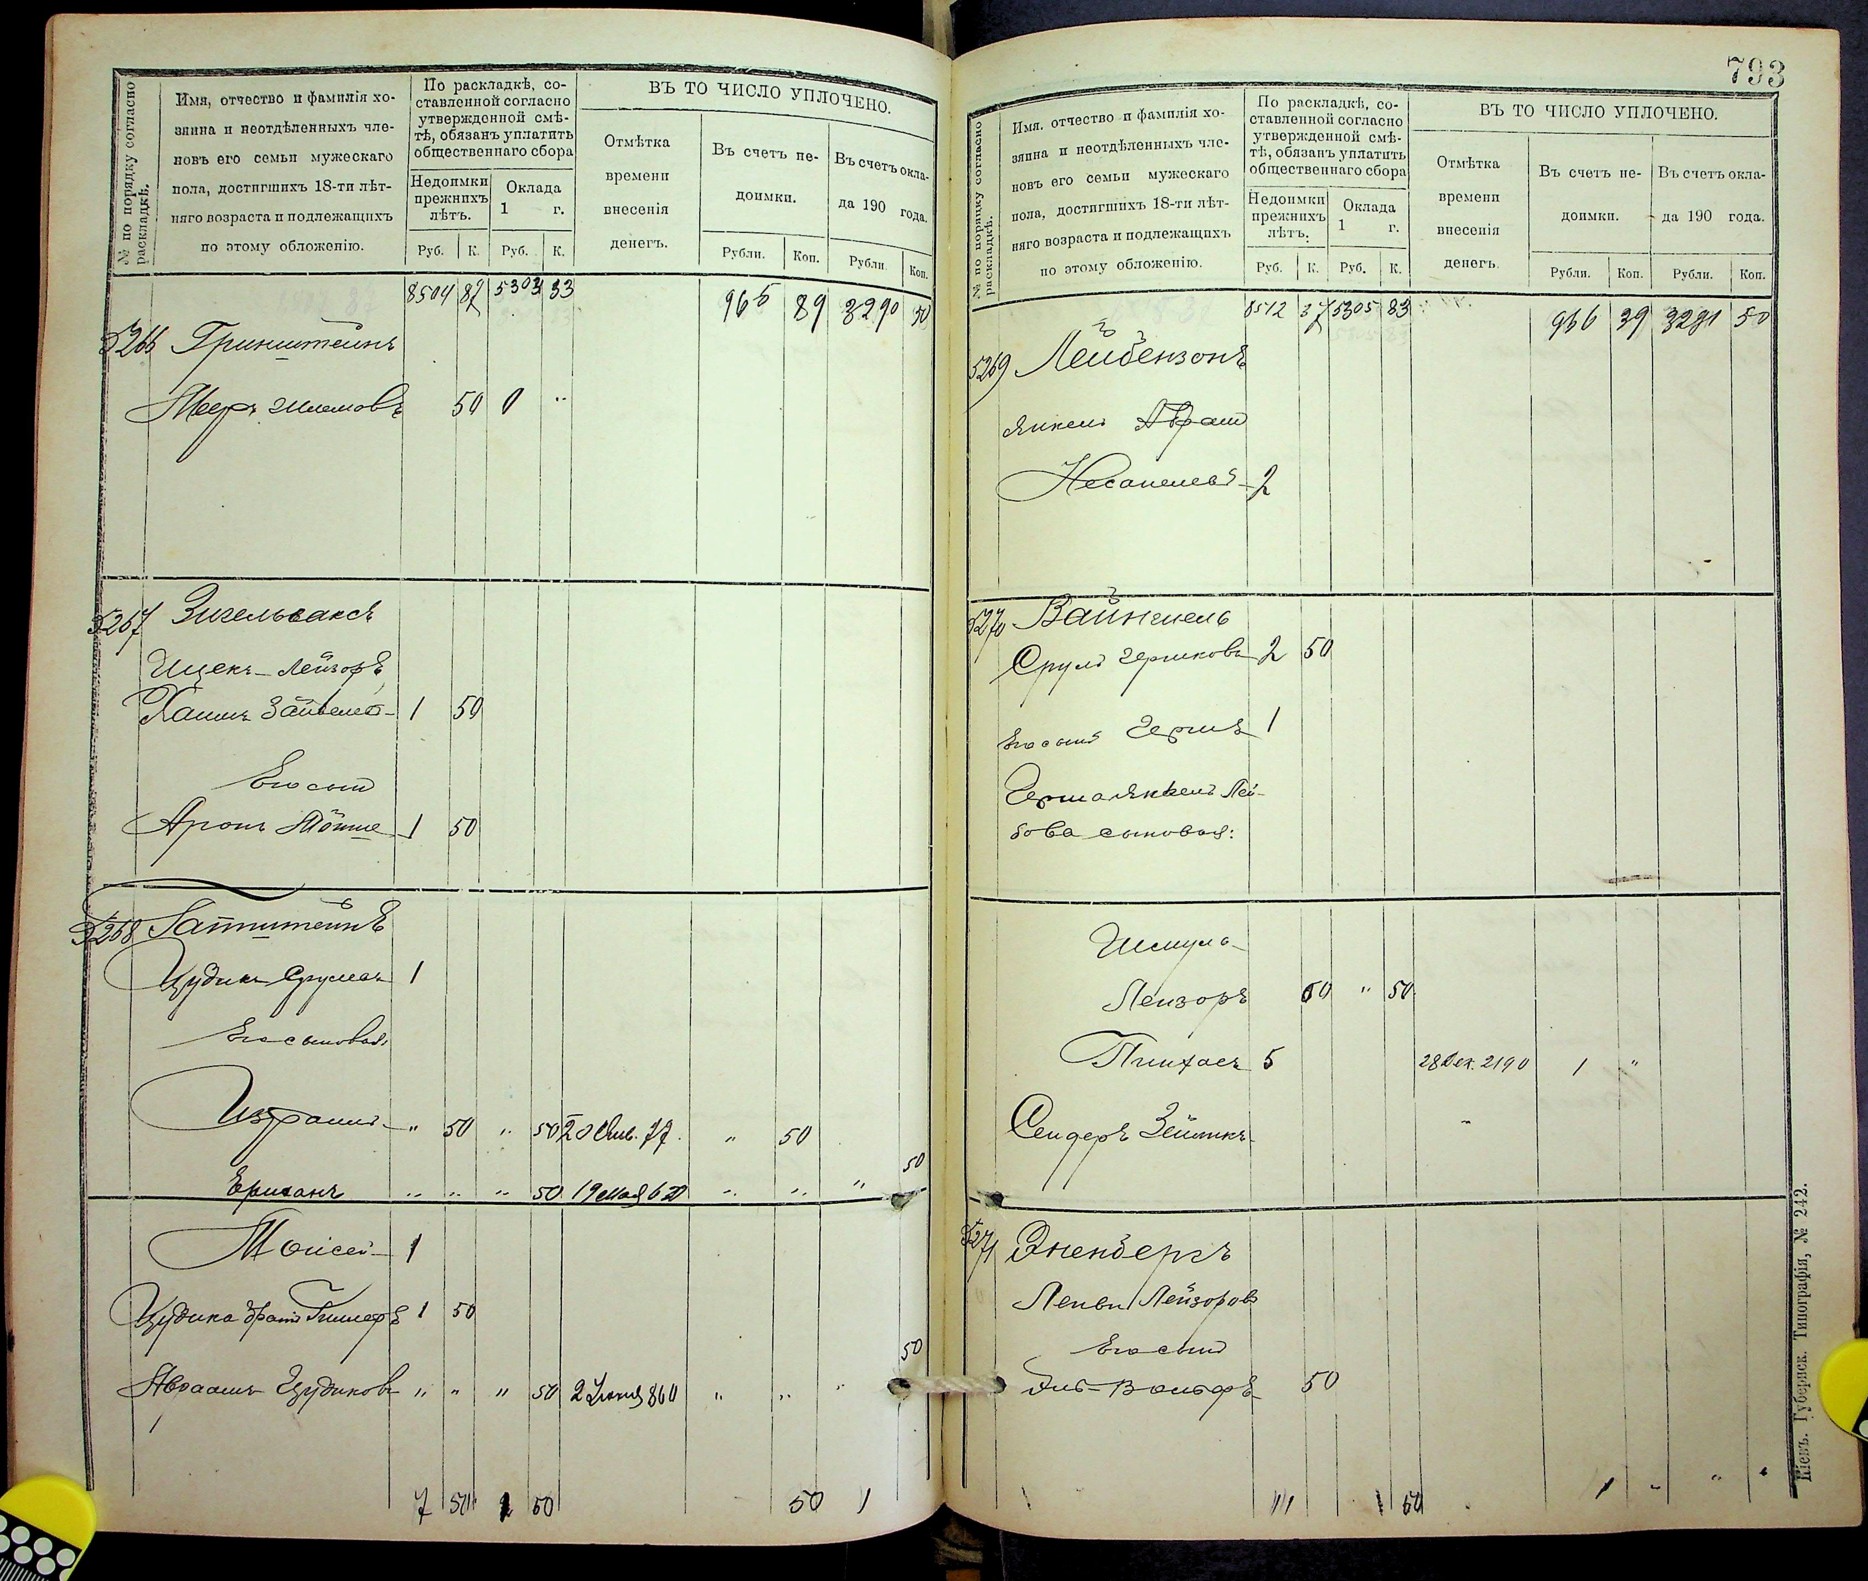 № по порядку согласно раскладкѣ.
Имя, отчество и фамилія хо-
зяина и неотдѣленныхъ чле-
новъ его семьи мужескаго
пола, достигшихъ 18-ти лѣт-
няго возраста и подлежащихъ
по этому обложенію.
По раскладкѣ, со-
ставленной согласно
утвержденной смѣ-
тѣ, обязанъ уплатить
общественнаго сбора
Недоимки
прежнихъ
лѣтъ.
Оклада
1 г.
Руб. К. Руб. К.
ВЪ ТО ЧИСЛО УПЛОЧЕНО.
Отмѣтка
времени
внесенія
денегъ.
Въ счетъ не-
доимки.
Въ счетъ окла-
да 190 года.
Рубли. Коп. Рубли Коп.
8504 87 5303 33 965 89 3290 50
5266 Гринштейнъ
Мееръ Шлемовъ 50 0 "
5267 Зигельваксъ
Ицекъ-Лейзоръ
Хаимъ 1 50
Его сын
Аронъ 1 50
5268
Цудикъ Сруловъ 1
Его сыновья:
Израиль " 50 " 50 20 Янв. 77. " 50
50
" " " 50 19 мая 60 " " "
Моисей 1
Цудика братъ 1 50
50
Авраамъ Цудиковъ " " " 50 2 Іюня 860 " " "
7 50 1 50 50 1
793
№ по порядку согласно раскладкѣ.
Имя. отчество и фамилія хо-
зяина и неотдѣленныхъ чле-
новъ его семьи мужескаго
пола, достигшихъ 18-ти лѣт-
няго возраста и подлежащихъ
по этому обложенію.
По раскладкѣ, со-
ставленной согласно
утвержденной смѣ-
тѣ, обязанъ уплатить
общественнаго сбора
Недоимки
прежнихъ
лѣтъ.
Оклада
1 г.
Руб. К. Руб. К.
ВЪ ТО ЧИСЛО УПЛОЧЕНО.
Отмѣтка
времени
внесенія
денегъ.
Въ счетъ не-
доимки.
Въ счетъ окла-
да 190 года.
Рубли. Коп. Рубли. Коп.
8512 37 5305 83 966 39 3291 50
5269 Лейбензонъ
Янкель
2
5270
Сруль Гершковъ 2 50
Его сынъ Гершъ 1
Герша Янкель Лей-
бова сыновья:
Шмуль
Лейзоръ 50 " 50
Пинхасъ 5 28 Дек. 2190 1 "
Сендеръ
5271 Эненбергъ
Лейзоровъ
Его сын
Вольфъ 50
11 1 50 1 " "
Кіевъ. Губернск. Типографія, № 242.